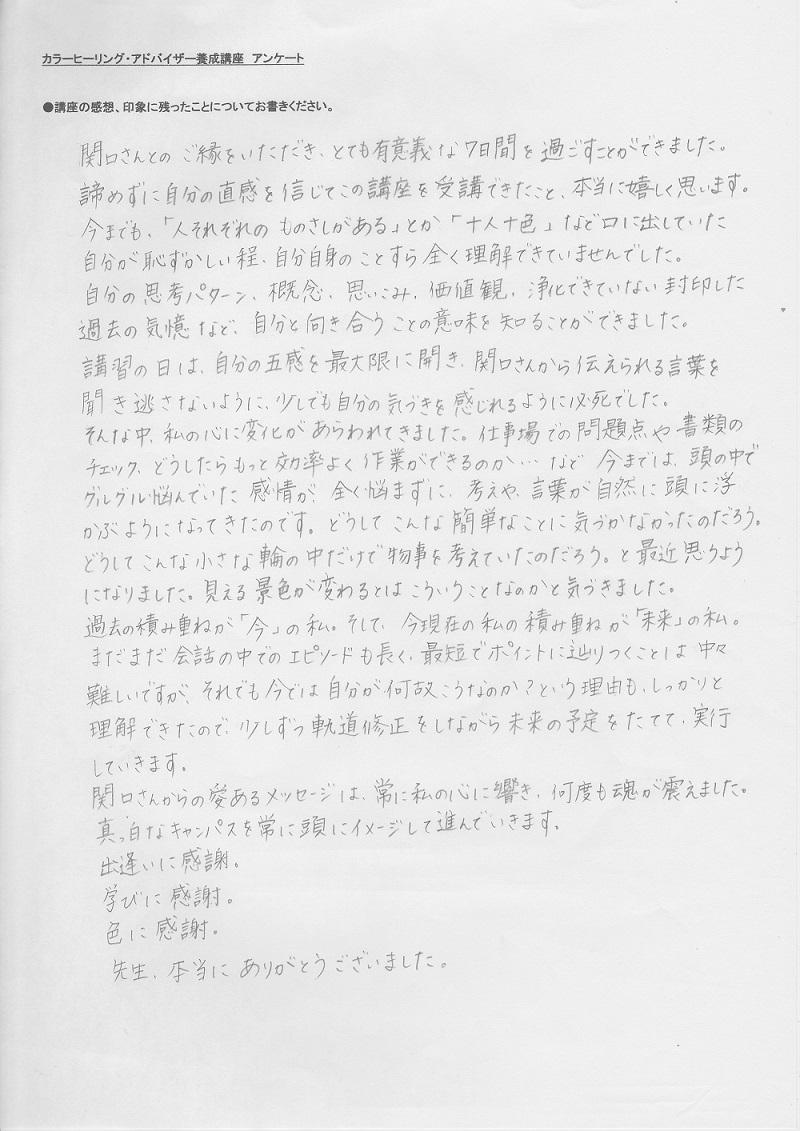 カラーヒーリング・アドバイザー養成講座 アンケート
●講座の感想、印象に残ったことについてお書きください。
関口さんとの ご縁をいただき、とても有意義な7日間を過ごすことができました。
諦めずに自分の直感を信じてこの講座を受講できたこと、本当に嬉しく思います。
今までも、「人それぞれの ものさしがある」とか「十人十色」など口に出していた
自分が恥ずかしい程、自分自身のことすら全く理解できていませんでした。
自分の思考パターン、概念、思いこみ、価値観、浄化できていない封印した
過去の気憶など、自分と向き合うことの意味を知ることができました。
講習の日は、自分の五感を最大限に開き、関口さんから伝えられる言葉を
聞き逃さないように、少しでも自分の気づきを感じれるように必死でした。
そんな中、私の心に変化があらわれてきました。仕事場での問題点や書類の
チェック、どうしたらもっと効率よく作業ができるのか…など 今までは、頭の中で
グルグル悩んでいた感情が、全く悩まずに、考えや、言葉が自然に頭に浮
かぶようになってきたのです。どうしてこんな簡単なことに気づかなかったのだろう。
どうしてこんな小さな輪の中だけで物事を考えていたのだろう。と最近思うよう
になりました。見える景色が変わるとはこういうことなのかと気づきました。
過去の積み重ねが「今」の私。そして、今現在の私の積み重ねが「未来」の私。
まだまだ会話の中でのエピソードも長く、最短でポイントに辿りつくことは中々
難しいですが、それでも今では自分が何故こうなのか?という理由も、しっかりと
理解できたので、少しずつ軌道修正をしながら未来の予定をたてて、実行
していきます。
関口さんからの愛あるメッセージは、常に私の心に響き、何度も魂が震えました。
真っ白なキャンパスを常に頭にイメージして進んでいきます。
出逢いに感謝。
学びに感謝。
色に感謝。
先生、本当にありがとうございました。